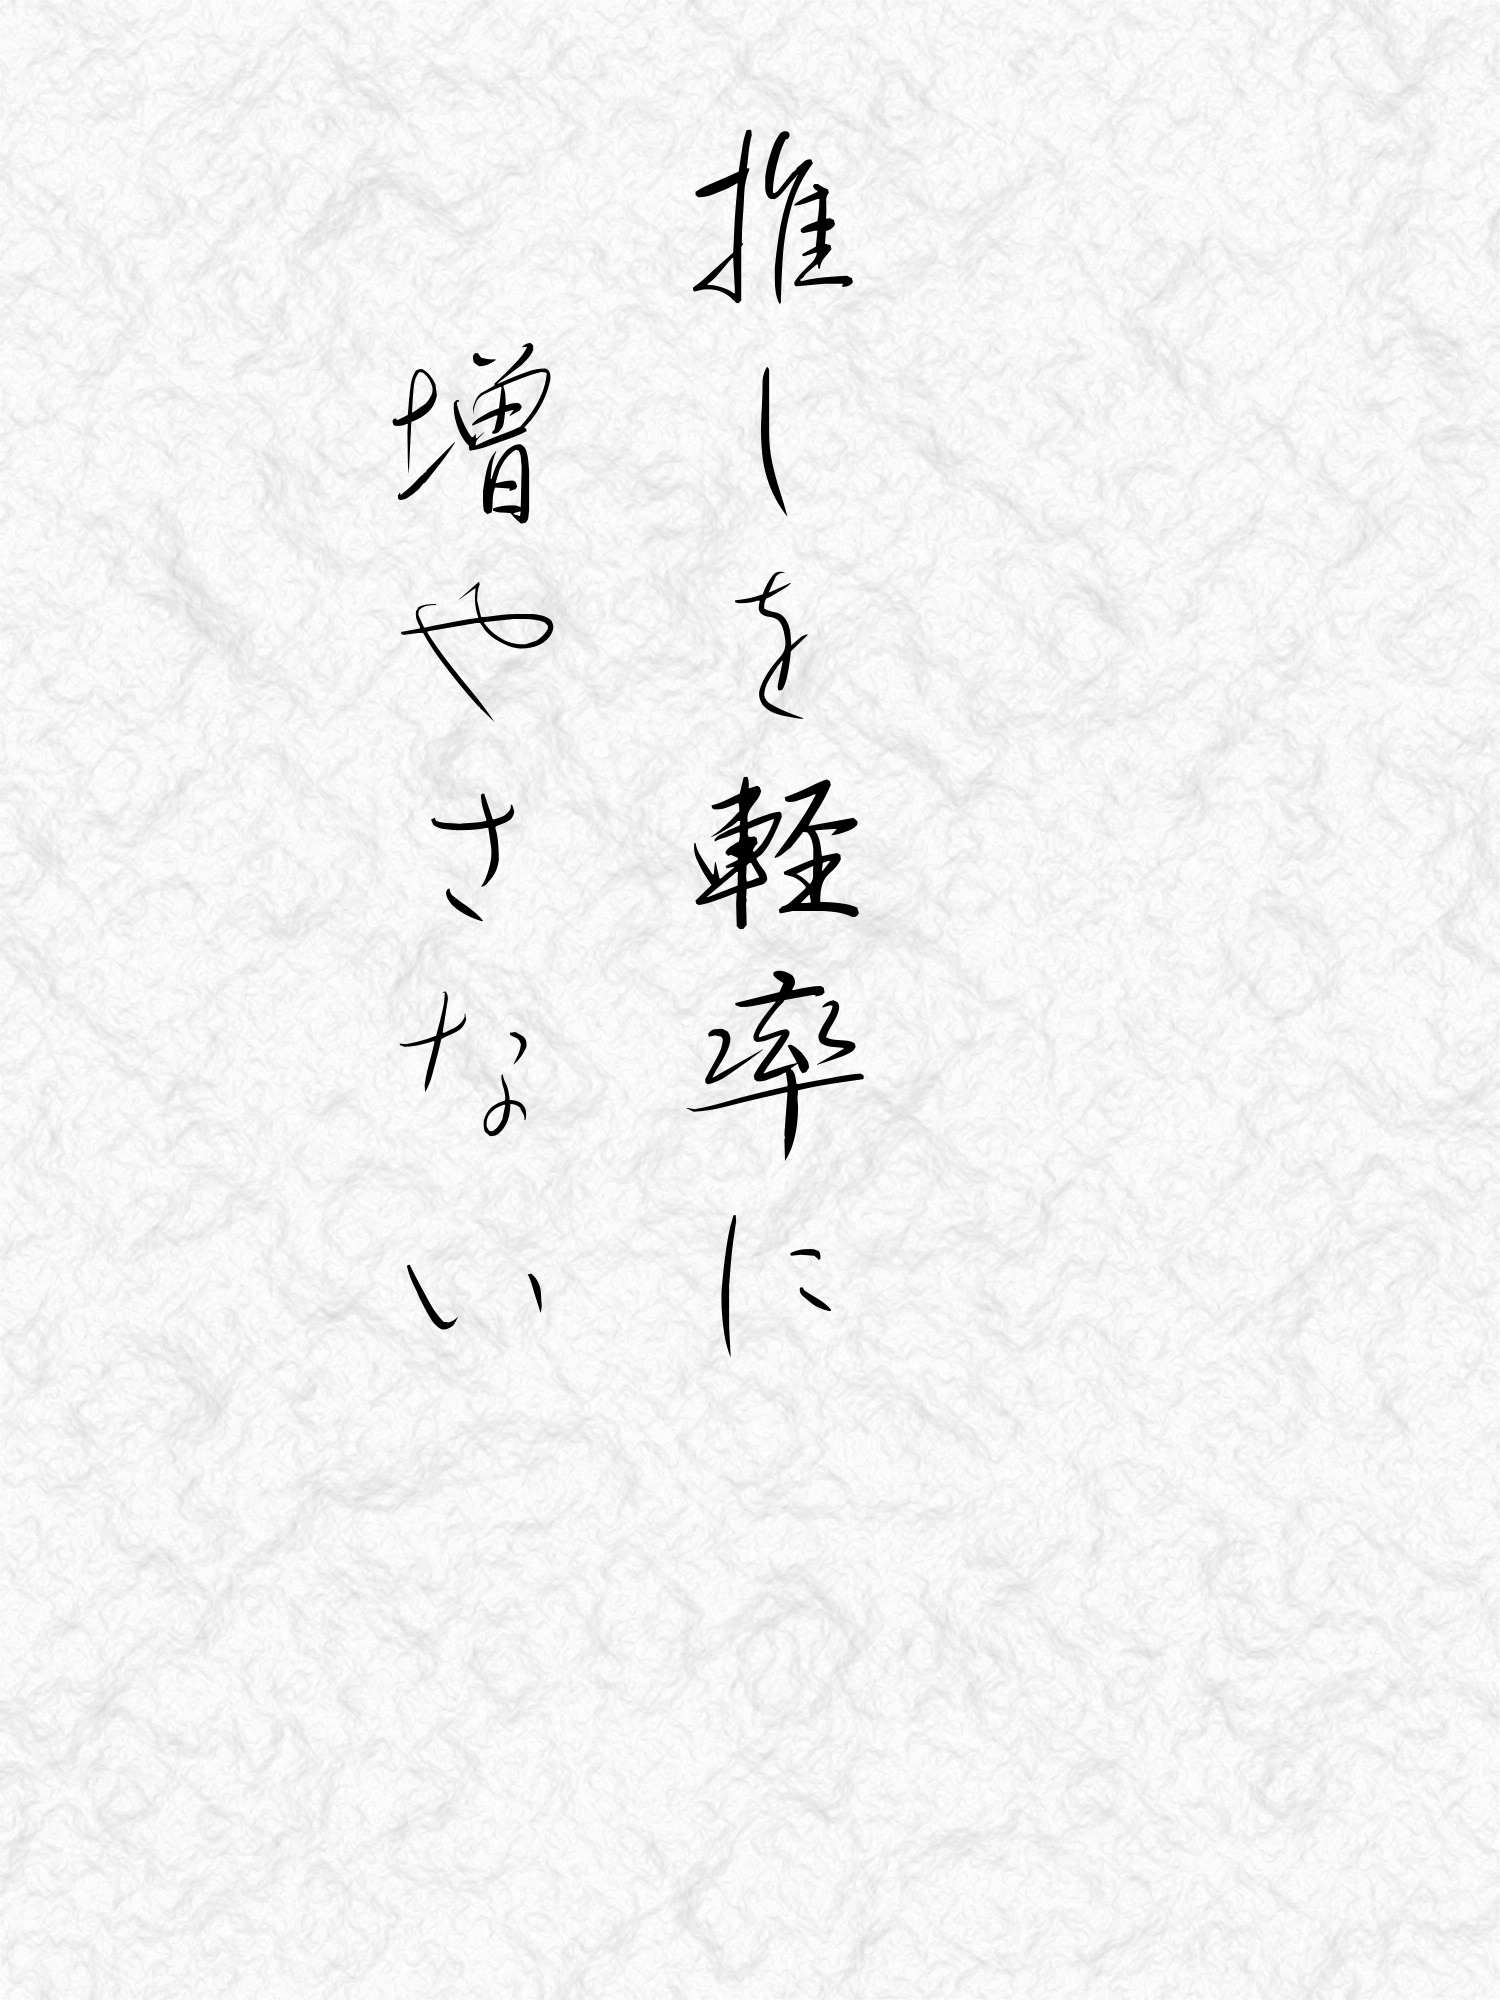 推しを軽率に
増やさない